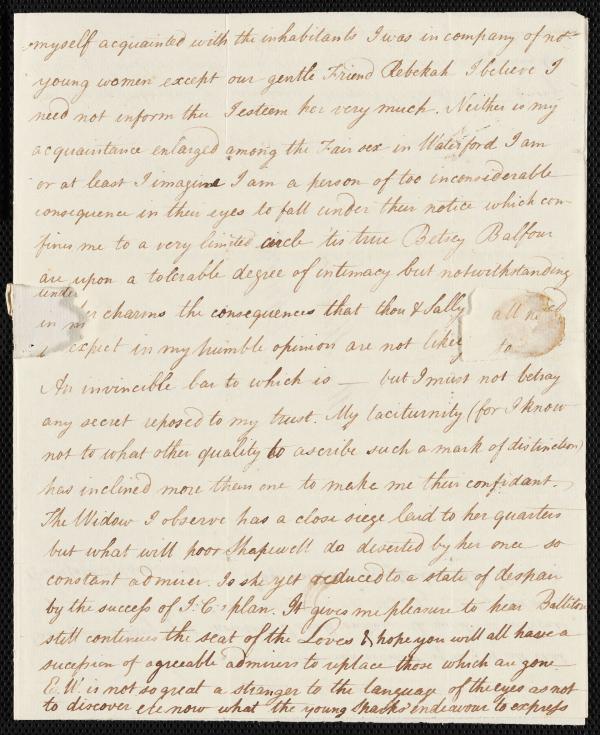 myself acquainted with the inhabitants I was in company of no
young women except our gentle Friend Rebekah I believe I
need not inform thee I esteem her very much. Neither is my
acquaintance enlarged among the Fair sex in Waterford I am
or at least I imagine I am a person of too inconsiderable
consequence in their eyes to fall under their notice which con-
fines me to a very limited circle 'tis true Betsey Balfour
are upon a tolerable degree of intimacy but notwithstanding
under
in charms the consequences that thou & Sally all
expect in my humble opinion are not likely to
An invincible bar to which is — but I must not betray
any secret reposed to my trust. My taciturnity (for I know
not to what other quality to ascribe such a mark of distinction)
has inclined more than one to make me their confidant.
The Widow I observe has a close siege laid to her quarters
but what will poor Shapewell do deserted by her once so
constant admirer. Is she yet reduced to a state of despair
by the success of J: C's plan. It gives me pleasure to hear
still continues the seat of the Loves & hope you will all have a
succession of agreeable admirers to replace those which are gone
E. W. is not so great a stranger to the language of the eyes as not
to discover ere now what the young Sparks endeavour to express